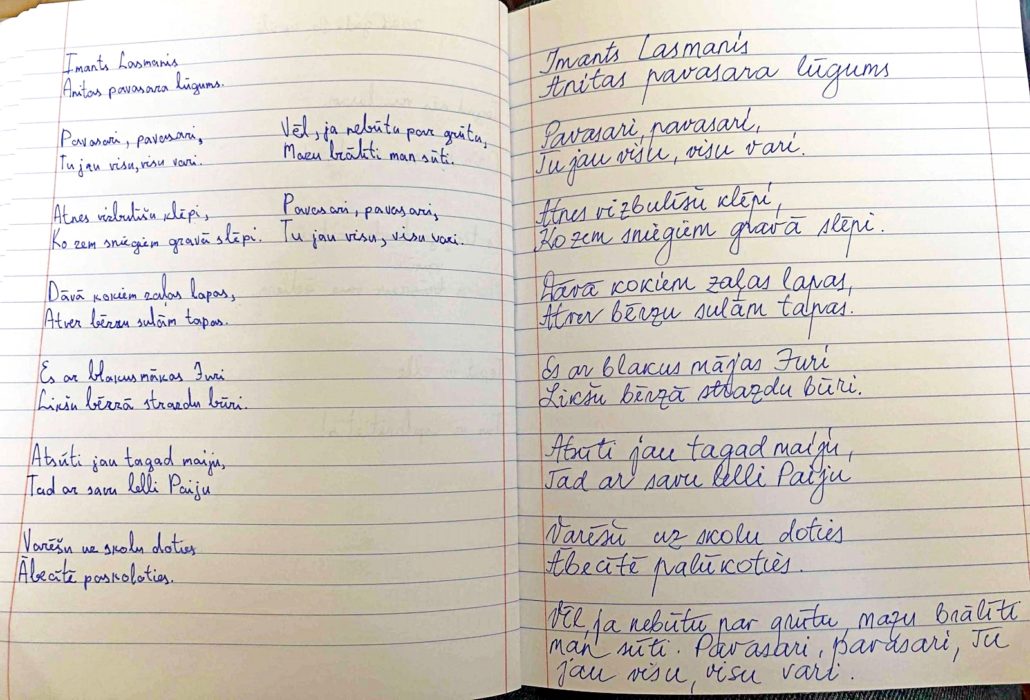 Imants Lasmanis
Anitas pavasara lūgums.
Pavasari, pavasari,
Tu jau visu, visu vari.
Atnes vizbulīšu klēpi,
Ko zem sniegiem gravā slēpi.
Dāvā kokiem zaļas lapas,
Atver bērzu sulām tapas.
Es ar blakus mākas Juri
Likšu bērzā strazdu būri.
Atsūti jau tagad maiju,
Tad ar savu lelli Paiju
Varēšu uz skolu doties
Ābecītē paskoloties.
Vēl, ja nebūtu par grūtu,
Mazu brālīti man sūti.
Pavasari, pavasari,
Tu jau visu, visu vari.
Imants Lasmanis
Anitas pavasara lūgums
Pavasari, pavasari,
Tu jau visu, visu vari.
Atnes vizbulīšu klēpi,
Ko zem sniegiem gravā slēpi.
Dāvā kokiem zaļas lapas,
Atver bērzu sulām tapas.
Es ar blakus mājas Juri
Likšu bērzā strazdu būri.
Atsūti jau tagad maiju,
Tad ar savu lelli Paiju
Varēšu uz skolu doties
Ābecītē palūkoties.
Vēl, ja nebūtu par grūtu, mazu brālīti
man sūti. Pavasari, pavasari, Tu
jau visu, visu vari.